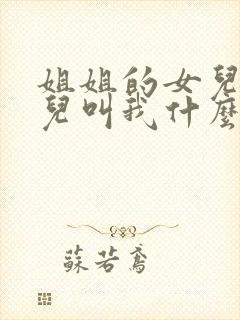 姐姐的女兒
兒叫我什麼
蘇若鳶